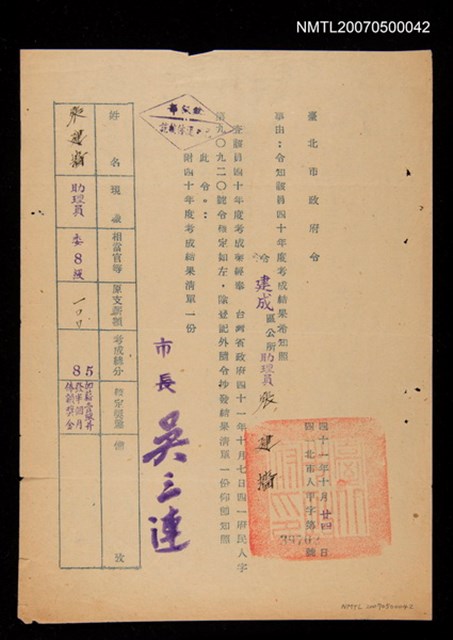 NMTL20070500042
臺北市政府令
事由:令知該員四十年度考成結果希知照
四十一年十月廿四日
四一北市人乎字第號
令建成區公所助理員張建墻
查該員四十年度考成業經奉 台灣省政府四十一年十月七日四一府民人字
第九〇九二〇號令核定如左,除登記外隨令抄發結果清單一份仰卽知照
此令。
附四十年度考成結果清單一份
市長 吳三連
姓名
現職
相當官等
原支薪額
考成總分
核定獎懲
備
攷
助理員
委8級
一〇〇
85
NMTL 20070500042